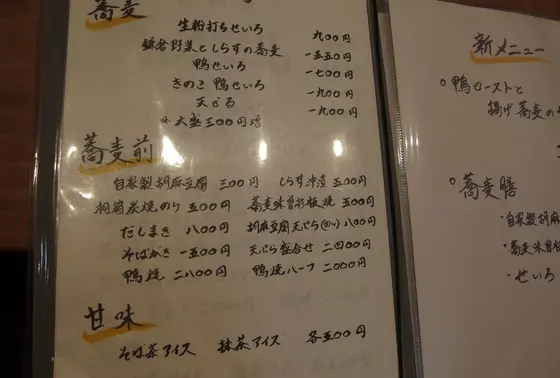 蕎麦
生粉打ちせいろ 九〇〇円
鎌倉野菜としらすの蕎麦 一五五〇円
鴨せいろ 一七〇〇円
きのこ鴨せいろ 一九〇〇円
天ざる 一九〇〇円
※大盛三〇〇円増
蕎麦前
自家製胡麻豆腐 三〇〇円 しらす沖漬 五〇〇円
桐箱炭焼のり 五〇〇円 蕎麦味噌杉板焼 五〇〇円
だしまき 八〇〇円 胡麻豆腐天ぷら 八〇〇円
そばがき 一五〇〇円 天ぷら盛合せ 二四〇〇円
鴨焼 二八〇〇円 鴨焼ハーフ 二〇〇〇円
甘味
そば茶アイス 抹茶アイス 各五〇〇円
新メニュー
鴨ローストと
揚げ蕎麦の
蕎麦膳
・自家製胡麻
・蕎麦味噌
・せいろ